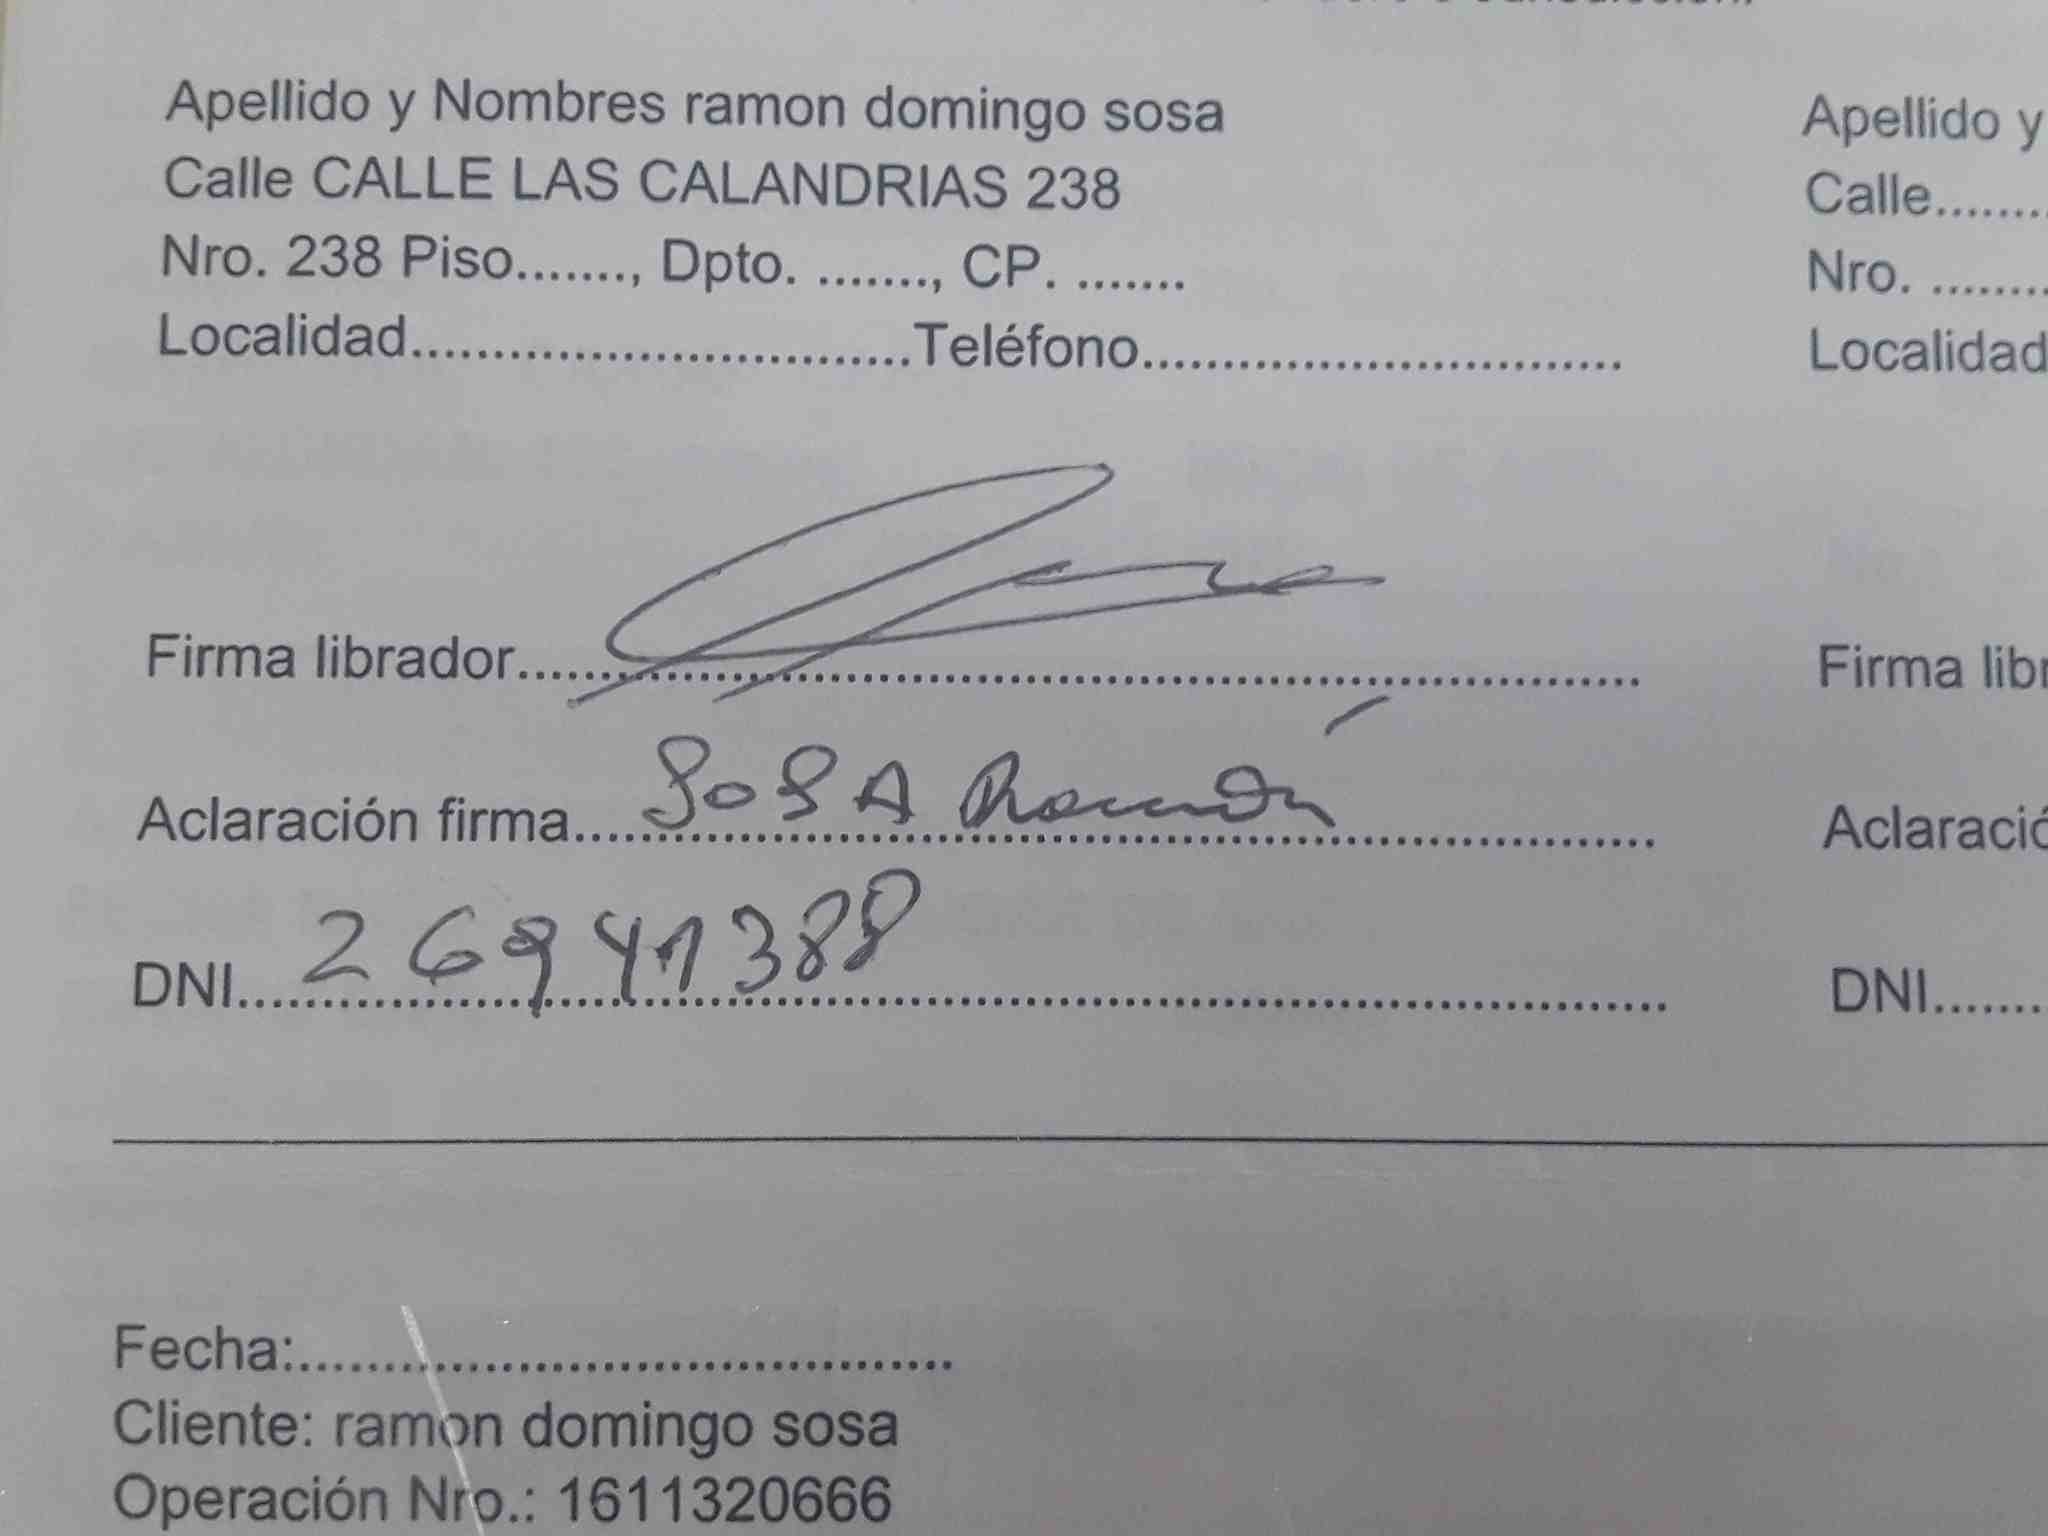 Apellido y Nombres ramon domingo sosa
Calle CALLE LAS CALANDRIAS 238
Nro. 238 Piso......., Dpto. ......., CP. .......
Localidad...............................Teléfono..............................
Firma librador......................................................................
Aclaración firma....SOSA Ramón....................
DNI....26941388....................
Apellido y
Calle........
Nro. ........
Localidad
Firma libr
Aclaració
DNI.......
Fecha:.........................................
Cliente: ramon domingo sosa
Operación Nro.: 1611320666